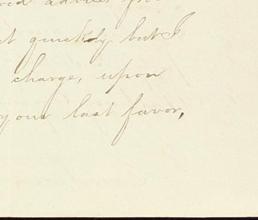 advise
t quickly but I
charge, upon
your last favor,